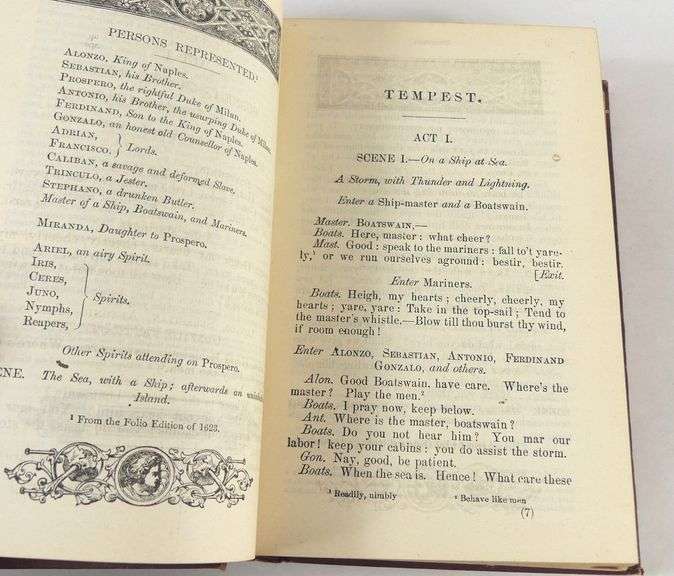 PERSONS REPRESENTED.¹
ALONZO, King of Naples.
SEBASTIAN, his Brother.
PROSPERO, the rightful Duke of Milan.
ANTONIO, his Brother, the usurping Duke of Milan.
FERDINAND, Son to the King of Naples.
GONZALO, an honest old Counsellor of Naples.
ADRIAN,
FRANCISCO. } Lords.
CALIBAN, a savage and deformed Slave.
TRINCULO, a Jester.
STEPHANO, a drunken Butler.
Master of a Ship, Boatswain, and Mariners.
MIRANDA, Daughter to Prospero.
ARIEL, an airy Spirit.
IRIS,
CERES,
JUNO,
Nymphs,
Reapers,
} Spirits.
Other Spirits attending on Prospero.
ENE. The Sea, with a Ship; afterwards an
Island.
¹ From the Folio Edition of 1623.
TEMPEST.
ACT I.
SCENE I.—On a Ship at Sea.
A Storm, with Thunder and Lightning.
Enter a Ship-master and a Boatswain.
Master. BOATSWAIN,—
Boats. Here, master: what cheer?
Mast. Good: speak to the mariners: fall to't yare-
ly,¹ or we run ourselves aground: bestir, bestir.
[Exit.
Enter Mariners.
Boats. Heigh, my hearts; cheerly, cheerly, my
hearts; yare, yare: Take in the top-sail; Tend to
the master's whistle.—Blow till thou burst thy wind,
if room enough!
Enter ALONZO, SEBASTIAN, ANTONIO, FERDINAND
GONZALO, and others.
Alon. Good Boatswain, have care. Where's the
master? Play the men.²
Boats. I pray now, keep below.
Ant. Where is the master, boatswain?
Boats. Do you not hear him? You mar our
labor! keep your cabins: you do assist the storm.
Gon. Nay, good, be patient.
Boats. When the sea is. Hence! What care these
¹ Readily, nimbly ² Behave like men
(7)